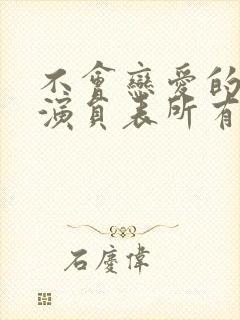 不會戀愛的
演員表所有
石慶偉